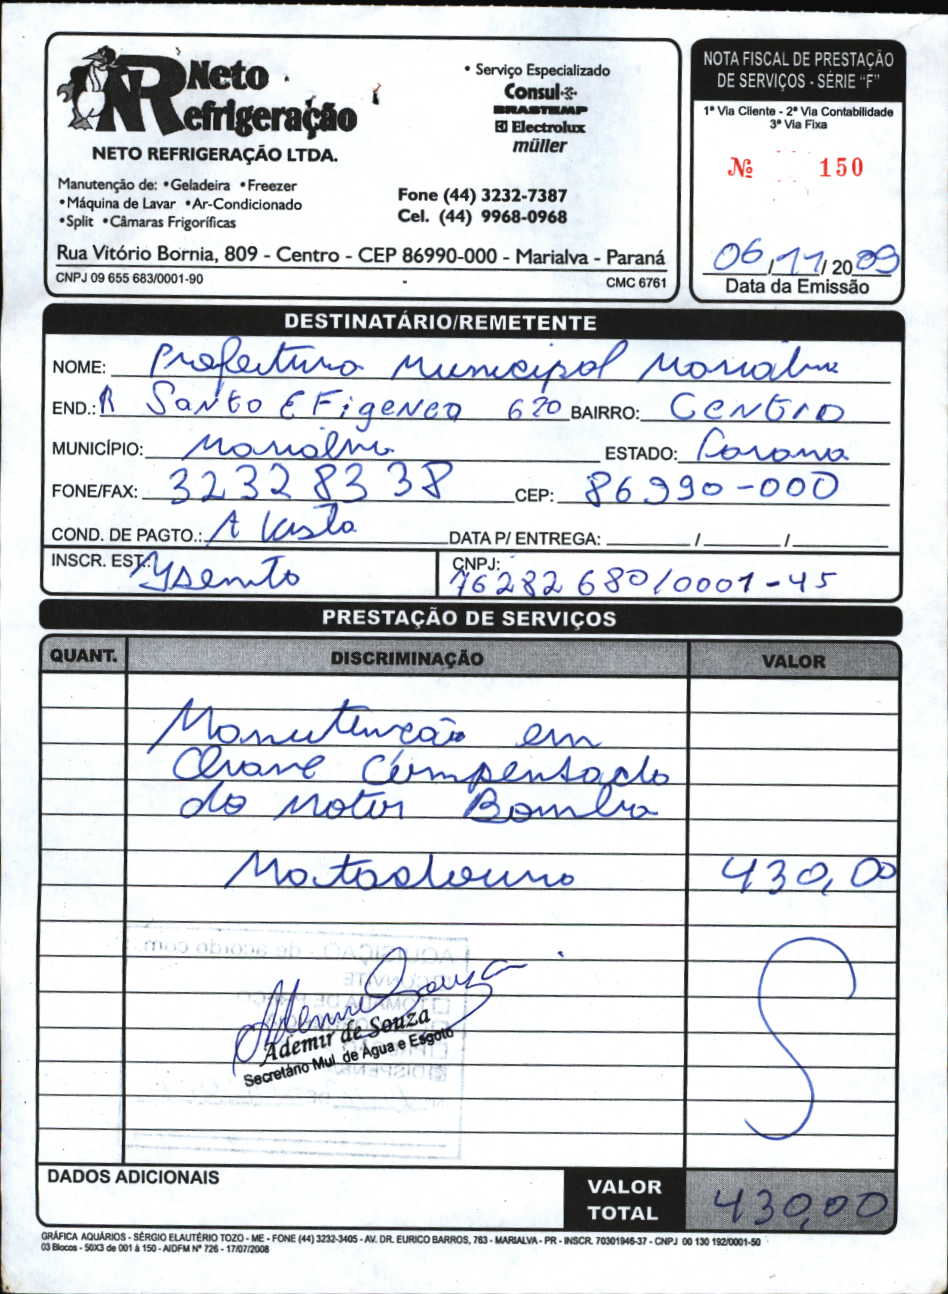 Neto
Refrigeração
NETO REFRIGERAÇÃO LTDA.
Manutenção de: • Geladeira • Freezer
• Máquina de Lavar • Ar-Condicionado
• Split • Câmaras Frigoríficas
• Serviço Especializado
Consul
BRASTEMP
Electrolux
müller
Fone (44) 3232-7387
Cel. (44) 9968-0968
Rua Vitório Bornia, 809 - Centro - CEP 86990-000 - Marialva - Paraná
CNPJ 09 655 683/0001-90
CMC 6761
NOTA FISCAL DE PRESTAÇÃO
DE SERVIÇOS - SÉRIE "F"
1ª Via Cliente - 2ª Via Contabilidade
3ª Via Fixa
Nº 150
06/11/2009
Data da Emissão
DESTINATÁRIO/REMETENTE
NOME: Prefeitura Municipal Marialva
END.: R Santo EFigenea 620 BAIRRO: CENTRO
MUNICÍPIO: Marialva ESTADO: Parana
FONE/FAX: 32328338 CEP: 86990-000
COND. DE PAGTO.: A Vista DATA P/ ENTREGA: / /
INSCR. EST.: Ysento CNPJ: 76282680/0001-45
PRESTAÇÃO DE SERVIÇOS
QUANT. DISCRIMINAÇÃO VALOR
Manutenção em
Chave Compensado
do motor Bomba
Matadouro 430,00
Ademir de Souza
Secretário Mul. de Água e Esgoto
DADOS ADICIONAIS
VALOR
TOTAL
430,00
GRÁFICA AQUÁRIOS - SÉRGIO ELAUTÉRIO TOZO - ME - FONE (44) 3232-3405 - AV. DR. EURICO BARROS, 763 - MARIALVA - PR - INSCR. 70301946-37 - CNPJ 00 130 192/0001-50
03 Blocos - 50X3 de 001 à 150 - AIDFM Nº 726 - 17/07/2008